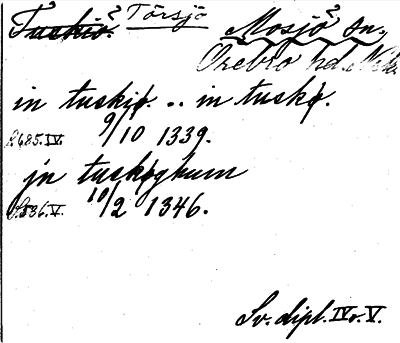 Tuskiö? Törsjö Mosjö? sn.
Örebro hd. Nke.
in tuskiø. .. in tuskø.
S.685.IV. 9/10 1339.
jn tuskøghum
S.536.V. 10/2 1346.
Sv. dipl. IV o. V.